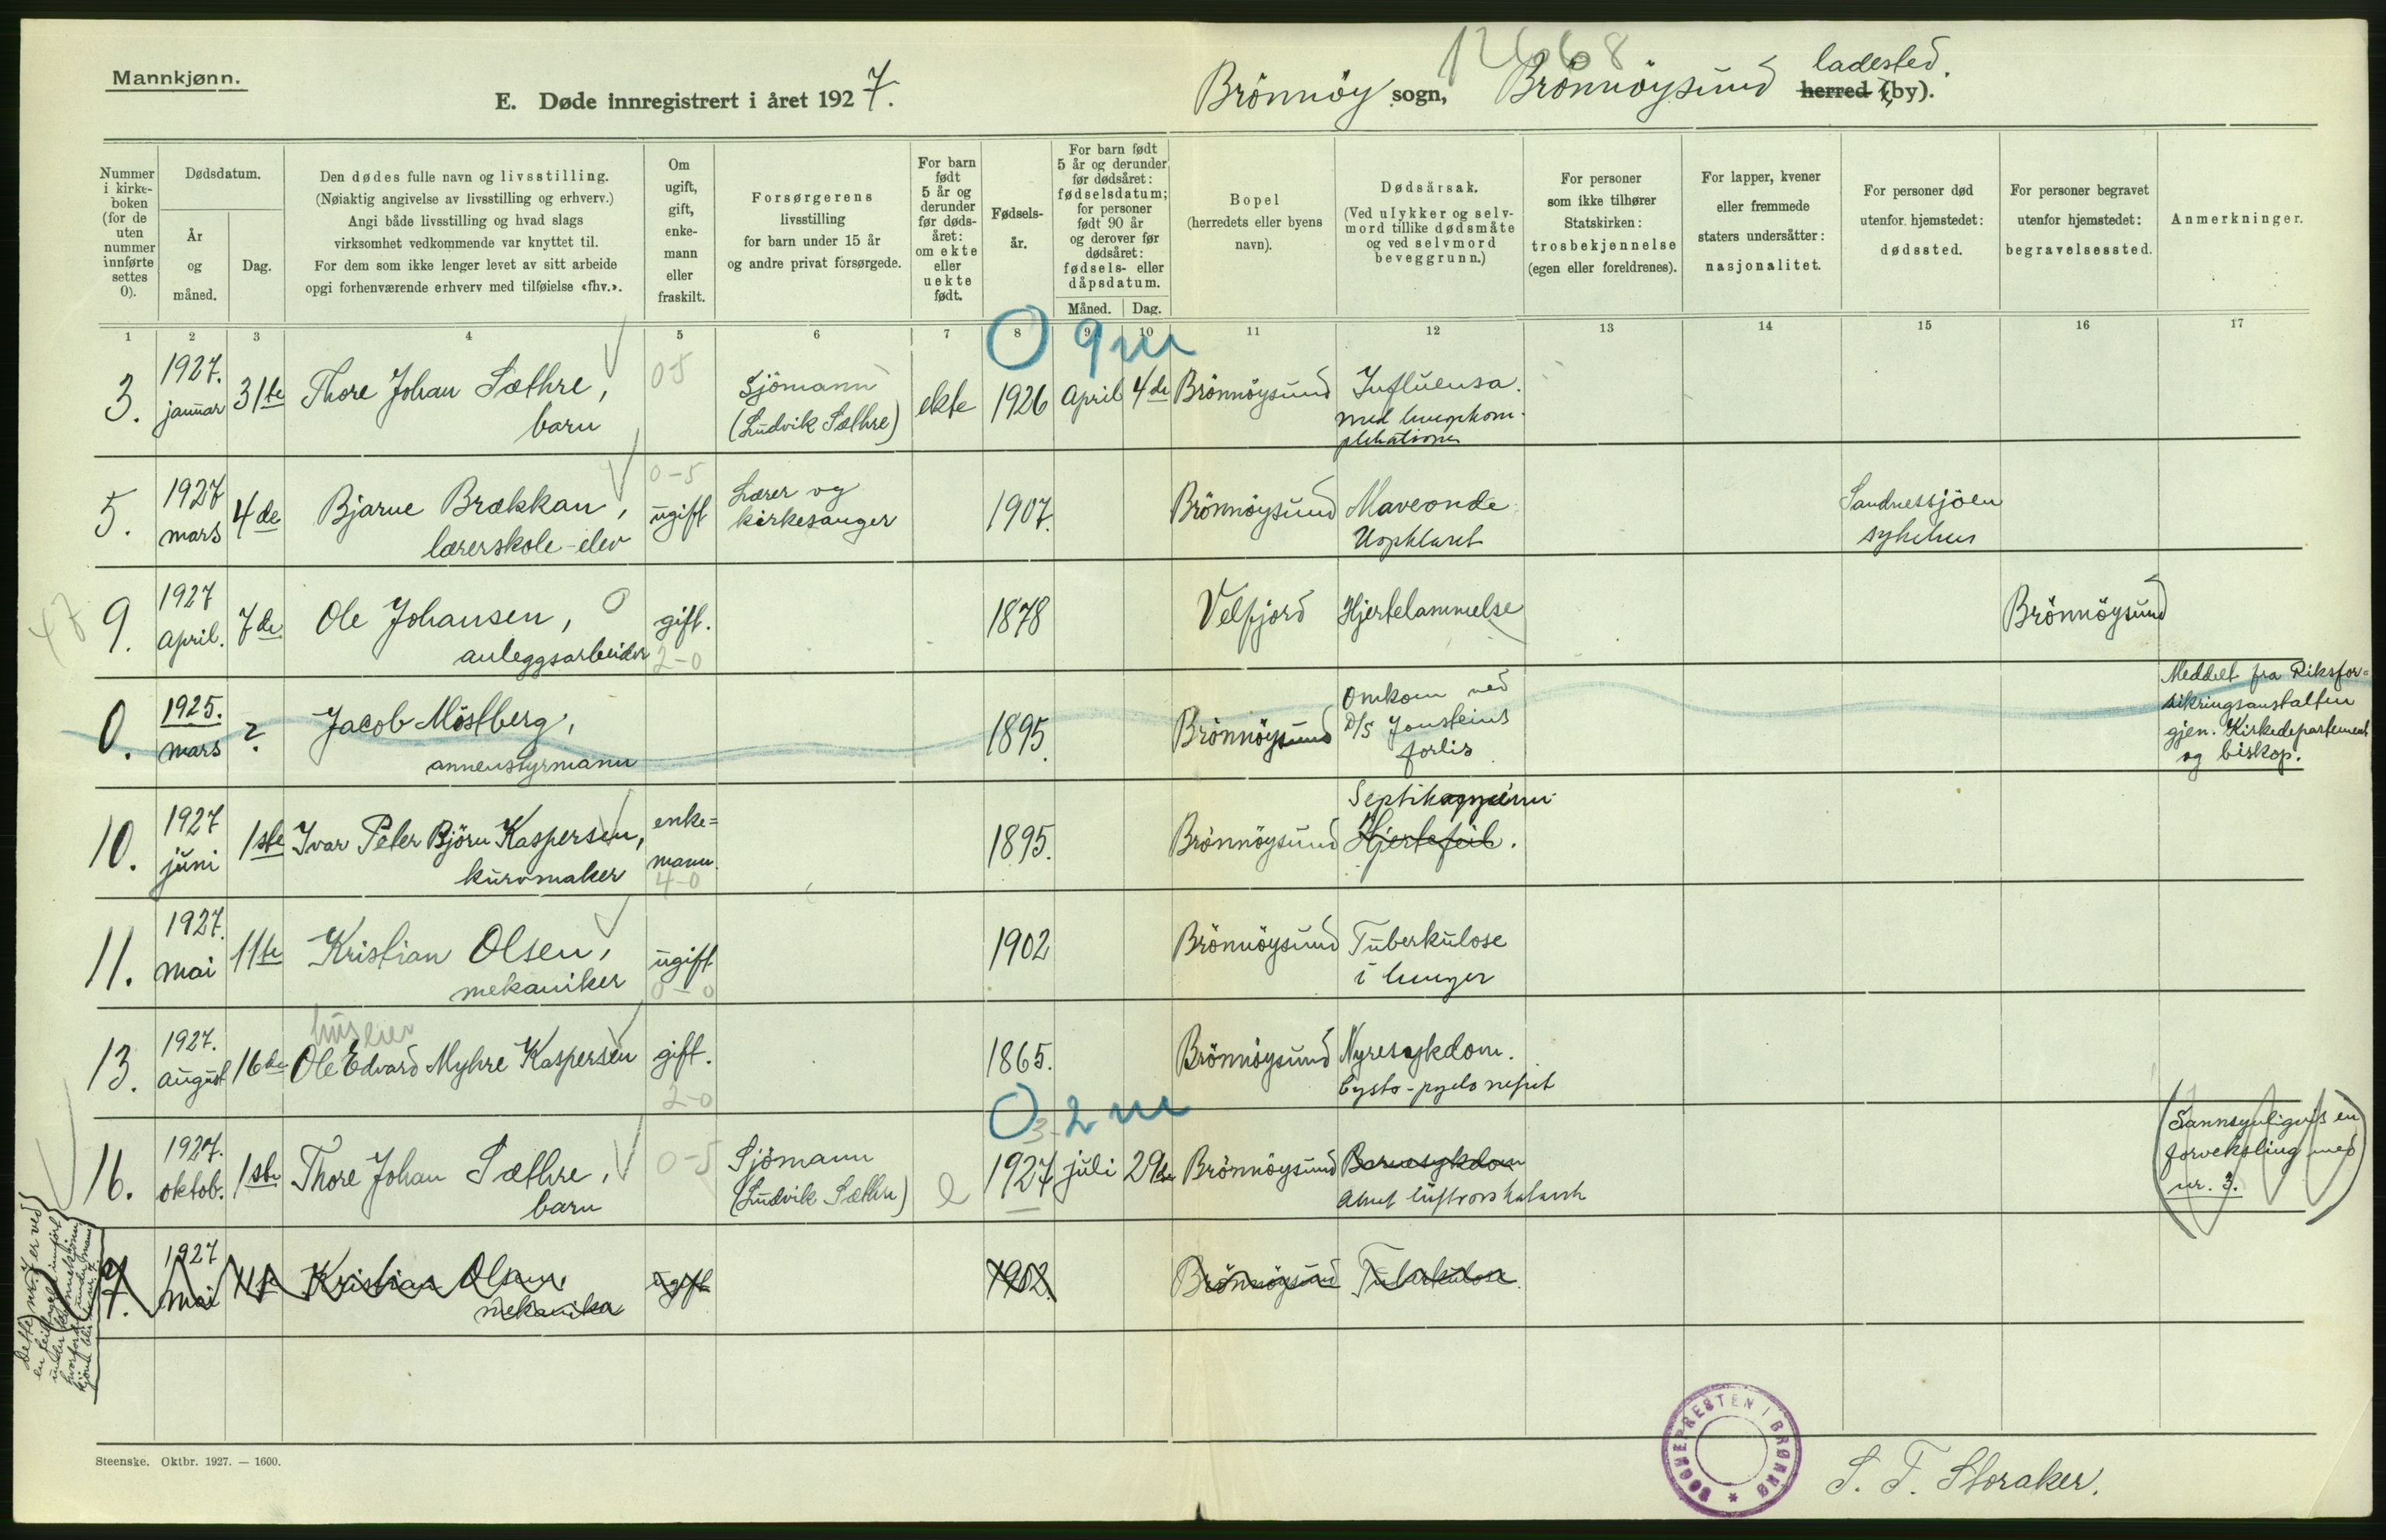 Mannkjønn.
E. Døde innregistrert i året 1927.
12668
Brönnöy sogn, Brönnöysund ladested.
herred (by).
Nummer i kirke-boken (for de uten nummer innførte settes 0).
Dødsdatum.
År og måned.
Dag.
Den dødes fulle navn og livsstilling.
(Nøiaktig angivelse av livsstilling og erhverv.)
Angi både livsstilling og hvad slags
virksomhet vedkommende var knyttet til.
For dem som ikke lenger levet av sitt arbeide
opgi forhenværende erhverv med tilføielse «fhv.».
Om ugift, gift, enke-mann eller fraskilt.
Forsørgerens
livsstilling
for barn under 15 år
og andre privat forsørgede.
For barn født 5 år og derunder før døds-året: om ekte eller uekte født.
Fødsels-år.
For barn født 5 år og derunder før dødsåret: fødselsdatum; for personer født 90 år og derover før dødsåret: fødsels- eller dåpsdatum.
Måned. Dag.
Bopel
(herredets eller byens
navn).
Dødsårsak.
(Ved ulykker og selv-
mord tillike dødsmåte
og ved selvmord
beveggrunn.)
For personer
som ikke tilhører
Statskirken:
trosbekjennelse
(egen eller foreldrenes).
For lapper, kvener
eller fremmede
staters undersåtter:
nasjonalitet.
For personer død
utenfor hjemstedet:
dødssted.
For personer begravet
utenfor hjemstedet:
begravelsessted.
Anmerkninger.
1 2 3 4 5 6 7 8 9 10 11 12 13 14 15 16 17
0 9 m
3. 1927. januar 31te Thore Johan Sæthre, barn 05 Sjömann (Ludvik Sæthre) ekte 1926 April 4de Brönnöysund Influensa. med lungekom-plikationer
5. 1927 mars 4de Bjarne Brækkan, lærerskole-elev 0-5 ugift Lærer og kirkesanger 1907. Brönnöysund Maveonde Uopklaret Sandnessjöen sykehus
47
9. 1927 April. 7de Ole Johansen, anleggsarbeider gift. 2-0 1878 Velfjord Hjertelammelse Brönnöysund
0. 1925. mars ? Jacob Möstberg, annenstyrmann 1895. Brönnöysund Omkom ved D/S Jonsteins forlis. Meddelt fra Riksfor=sikringsanstalten gjen. Kirkedepartement og biskop.
10. 1927 juni 1ste Ivar Peter Björn Kaspersen, kurvmaker enke=mann. 4-0 1895. Brönnöysund Hjertefeil.
11. 1927. mai 11te Kristian Olsen, mekaniker ugift 0-0 1902 Brönnöysund Tuberkulose i lunger
13. 1927. august 16de huseier Ole Edvard Myhre Kaspersen gift. 2-0 1865. Brönnöysund Nyresykdom. Cysto-pyelo nefrit
0 3- 2 m
16. 1927. oktob. 1ste Thore Johan Sæthre, barn 0-5 Sjömann (Ludvik Sæthre) e 1927 juli 29de Brönnöysund Barnesykdom Akut luftrörskatarrh (Sannsynligvis en forveksling med nr. 3.)
7. 1927 mai 11te Kristian Olsen, mekaniker ugift 1902. Brönnöysund Tuberkulose.
Steenske. Oktbr. 1927. — 1600.
SOGNEPRESTEN I BRØNNØ
S. F. Storaker.